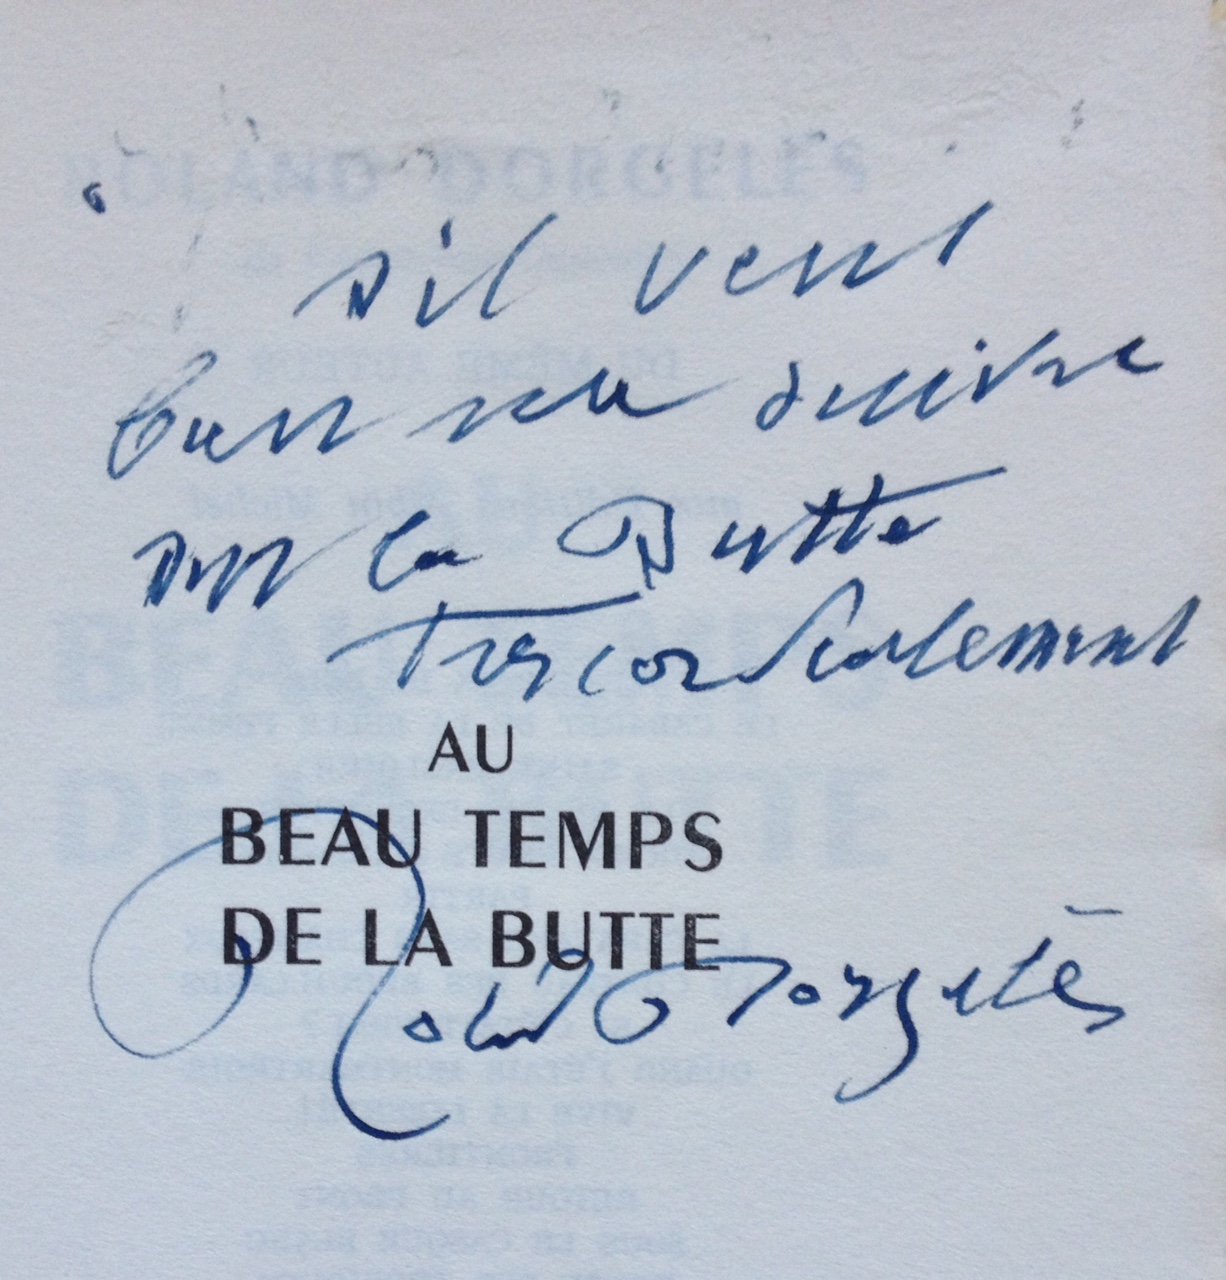 s'il veut
bien me suivre
sur la Butte
Très cordialement
AU
BEAU TEMPS
DE LA BUTTE
Roland Dorgelès